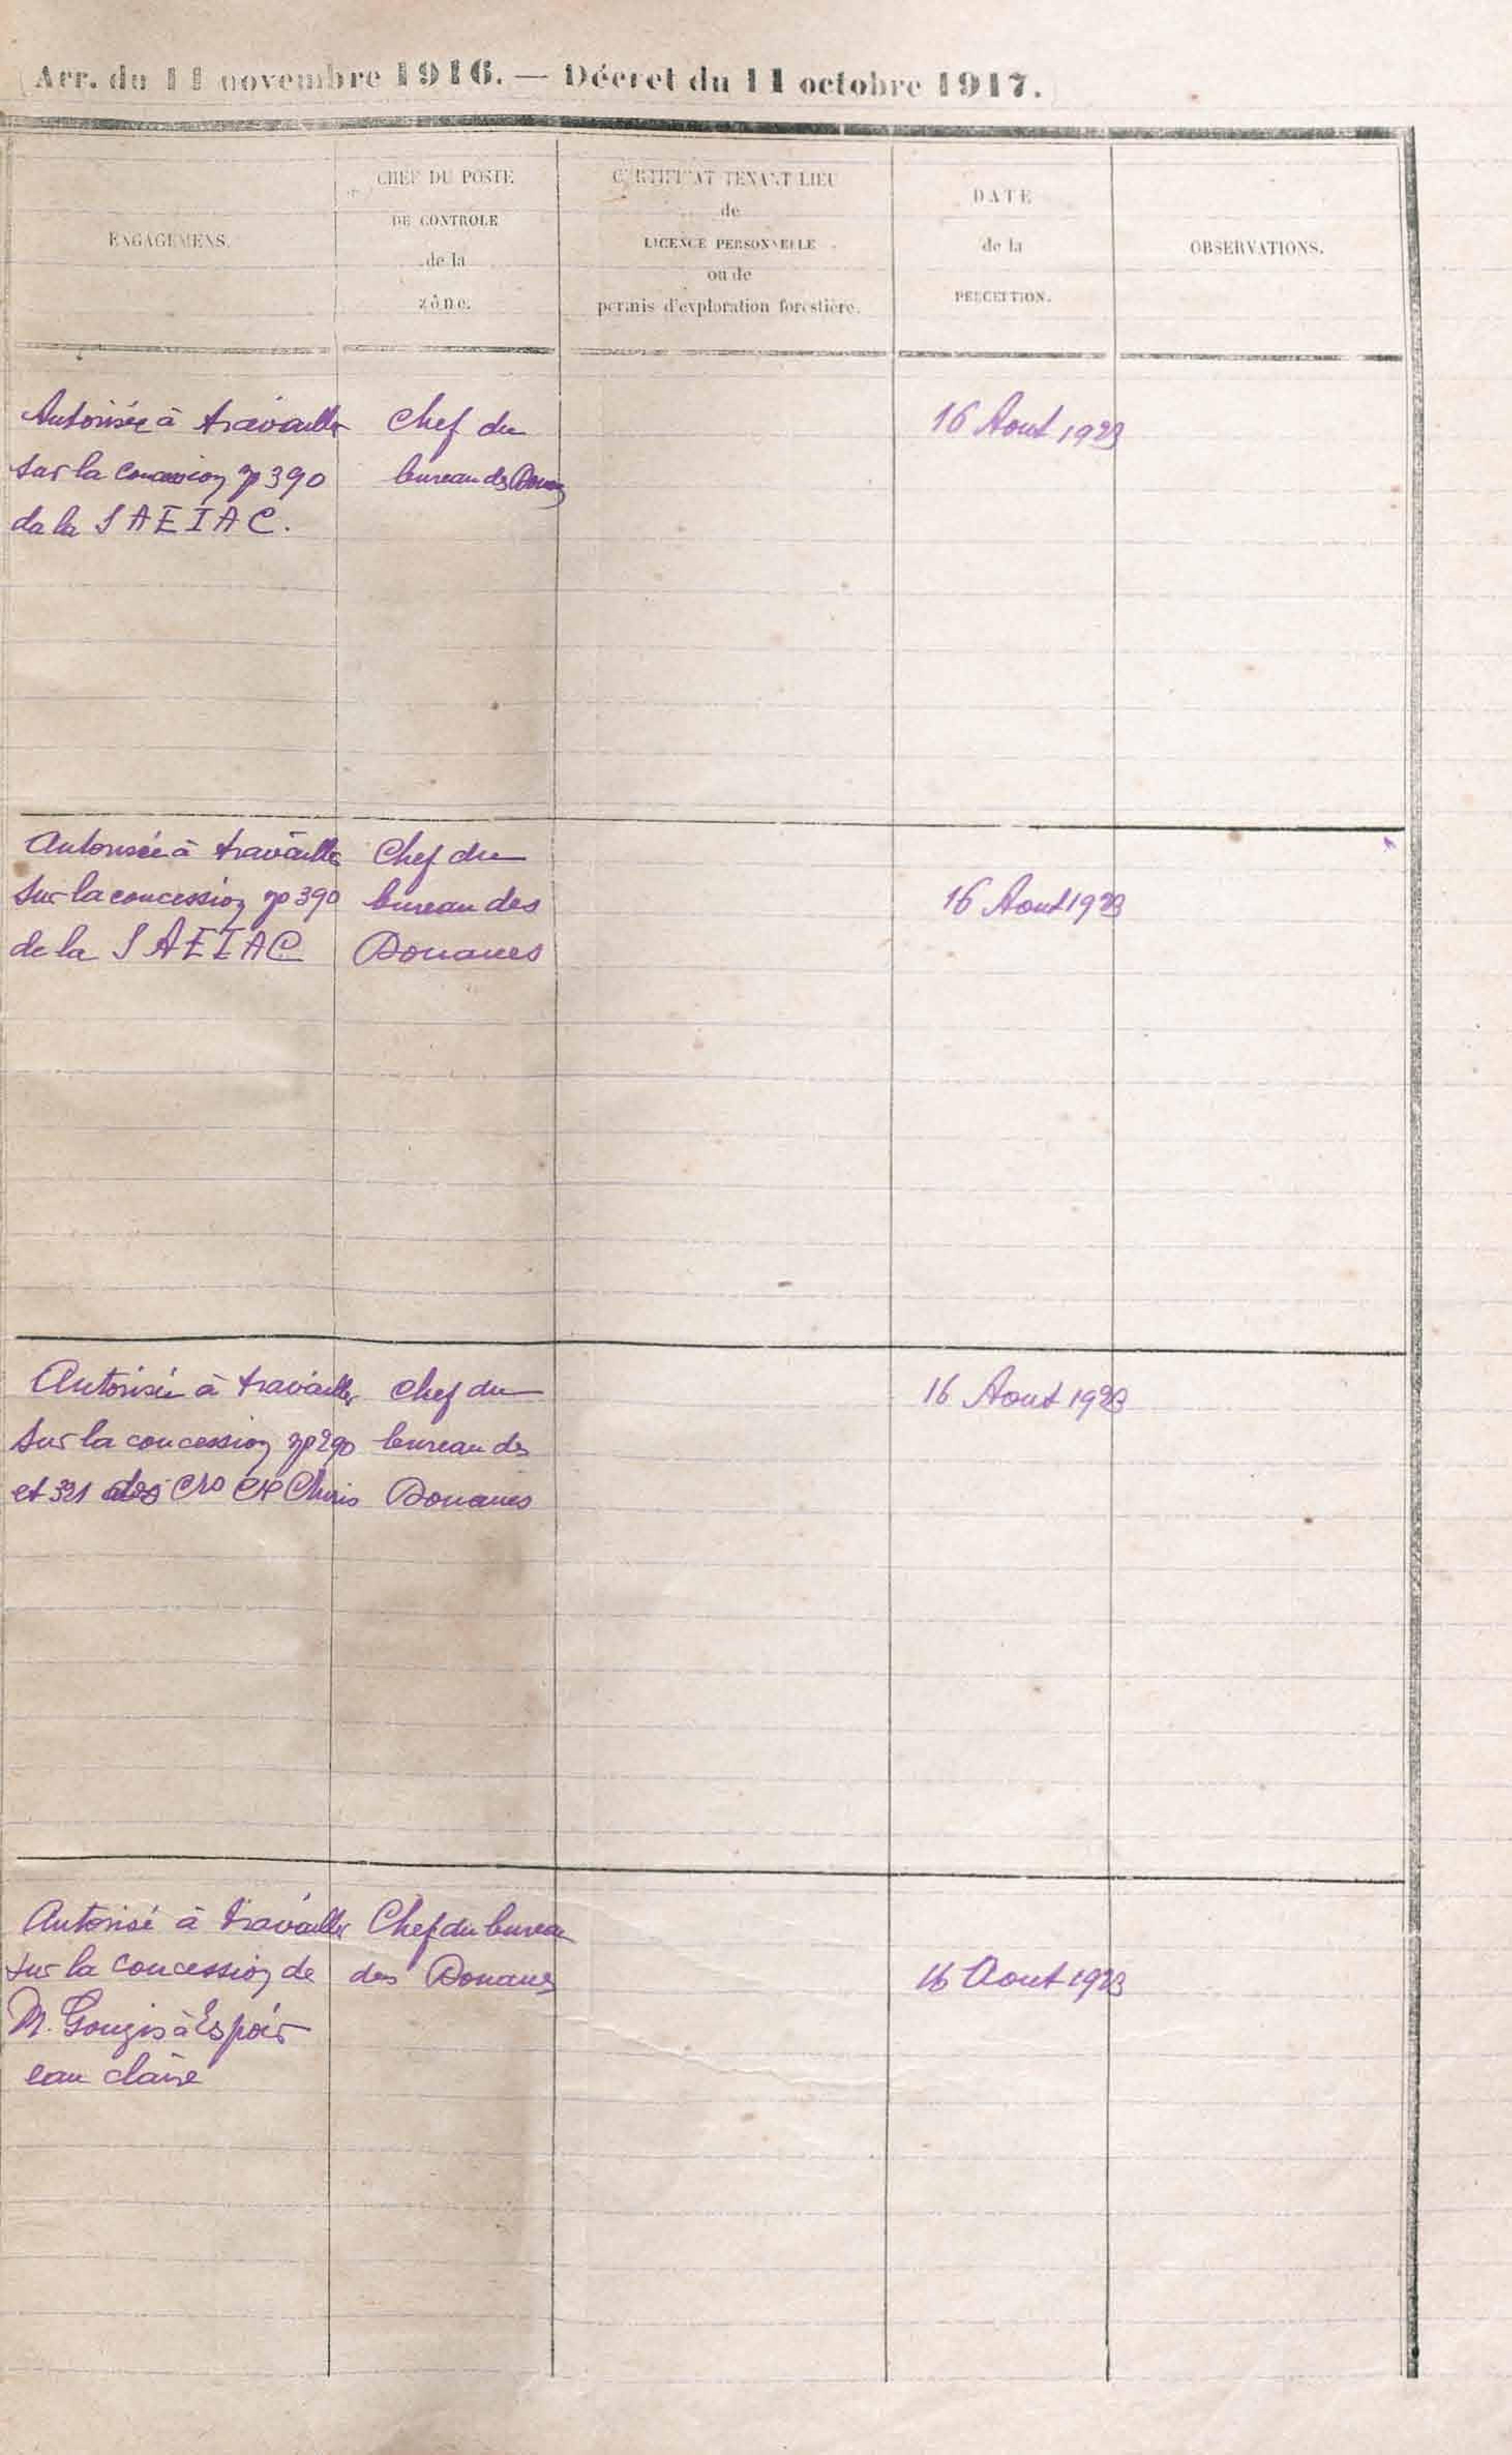 Arr. du 11 novembre 1916. — Décret du 11 octobre 1917.
ENGAGEMENS.
CHEF DU POSTE
DE CONTROLE
de la
zône.
CERTIFICAT TENANT LIEU
de
LICENCE PERSONNELLE
ou de
permis d'exploration forestière.
DATE
de la
PERCEPTION.
OBSERVATIONS.
Autorisée à travailler
sur la concession no 390
de la SAEIAC.
Chef du
bureau des
16 Aout 1923
Autorisée à travailler
sur la concession no 390
de la SAEIAC
Chef du
bureau des
Douanes
16 Aout 1923
Autorisée à travailler
sur la concession no 290
et 321 des Chiris
Chef du
bureau des
Douanes
16 Aout 1923
Autorisé à travailler
sur la concession de
M. Gougis à Espoir
eau claire
Chef du bureau
des Douanes
16 Aout 1923